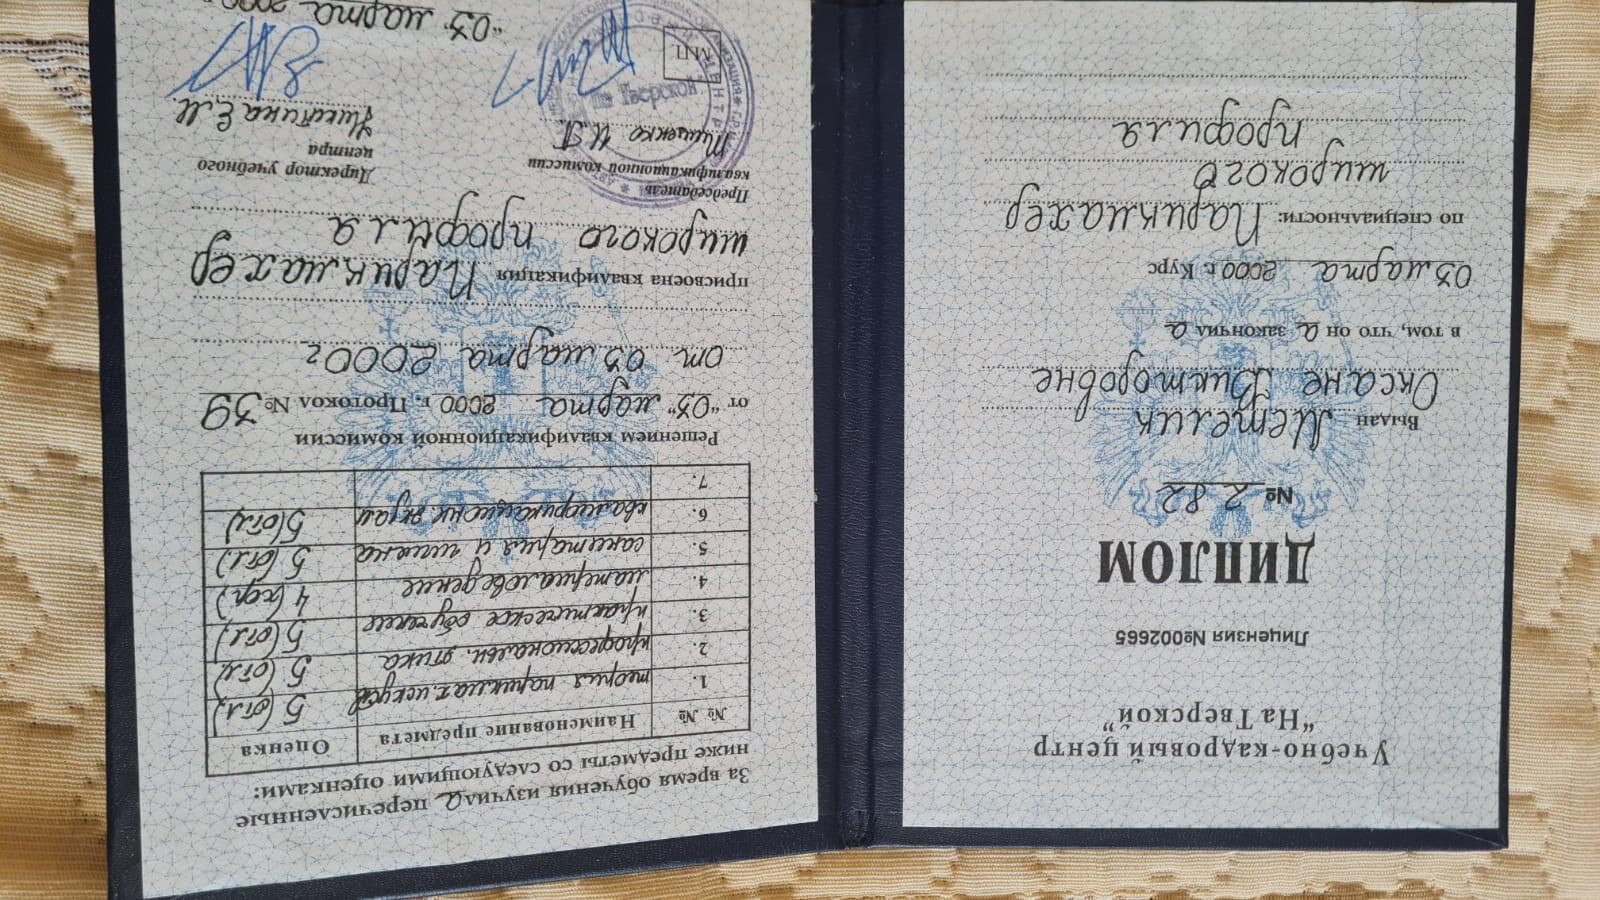 Учебно-кадровый центр
"На Тверской"
Лицензия №002665
ДИПЛОМ
№ 282
Выдан Метелик
Оксане Викторовне
в том, что он а закончил а
03 марта 2000 г. Курс
по специальности: Парикмахер
широкого
профиля
За время обучения изучил а перечисленные
ниже предметы со следующими оценками:
№ № Наименование предмета Оценка
1. теория парикмах. искусств 5 (отл)
2. профессиональн. этика 5 (отл)
3. практическое обучение 5 (отл)
4. материаловедение 4 (хор)
5. санитария и гигиена 5 (отл)
6. квалификационн экзам 5 (отл)
7.
Решением квалификационной комиссии
от "03" марта 2000 г. Протокол № 39
от 03 марта 2000 г
присвоена квалификация Парикмахер
широкого профиля
Председатель
квалификационной комиссии
Тищенко И.П.
Директор учебного
центра
Никитина Е.М
М.П.
На Тверской
"03" марта 2000